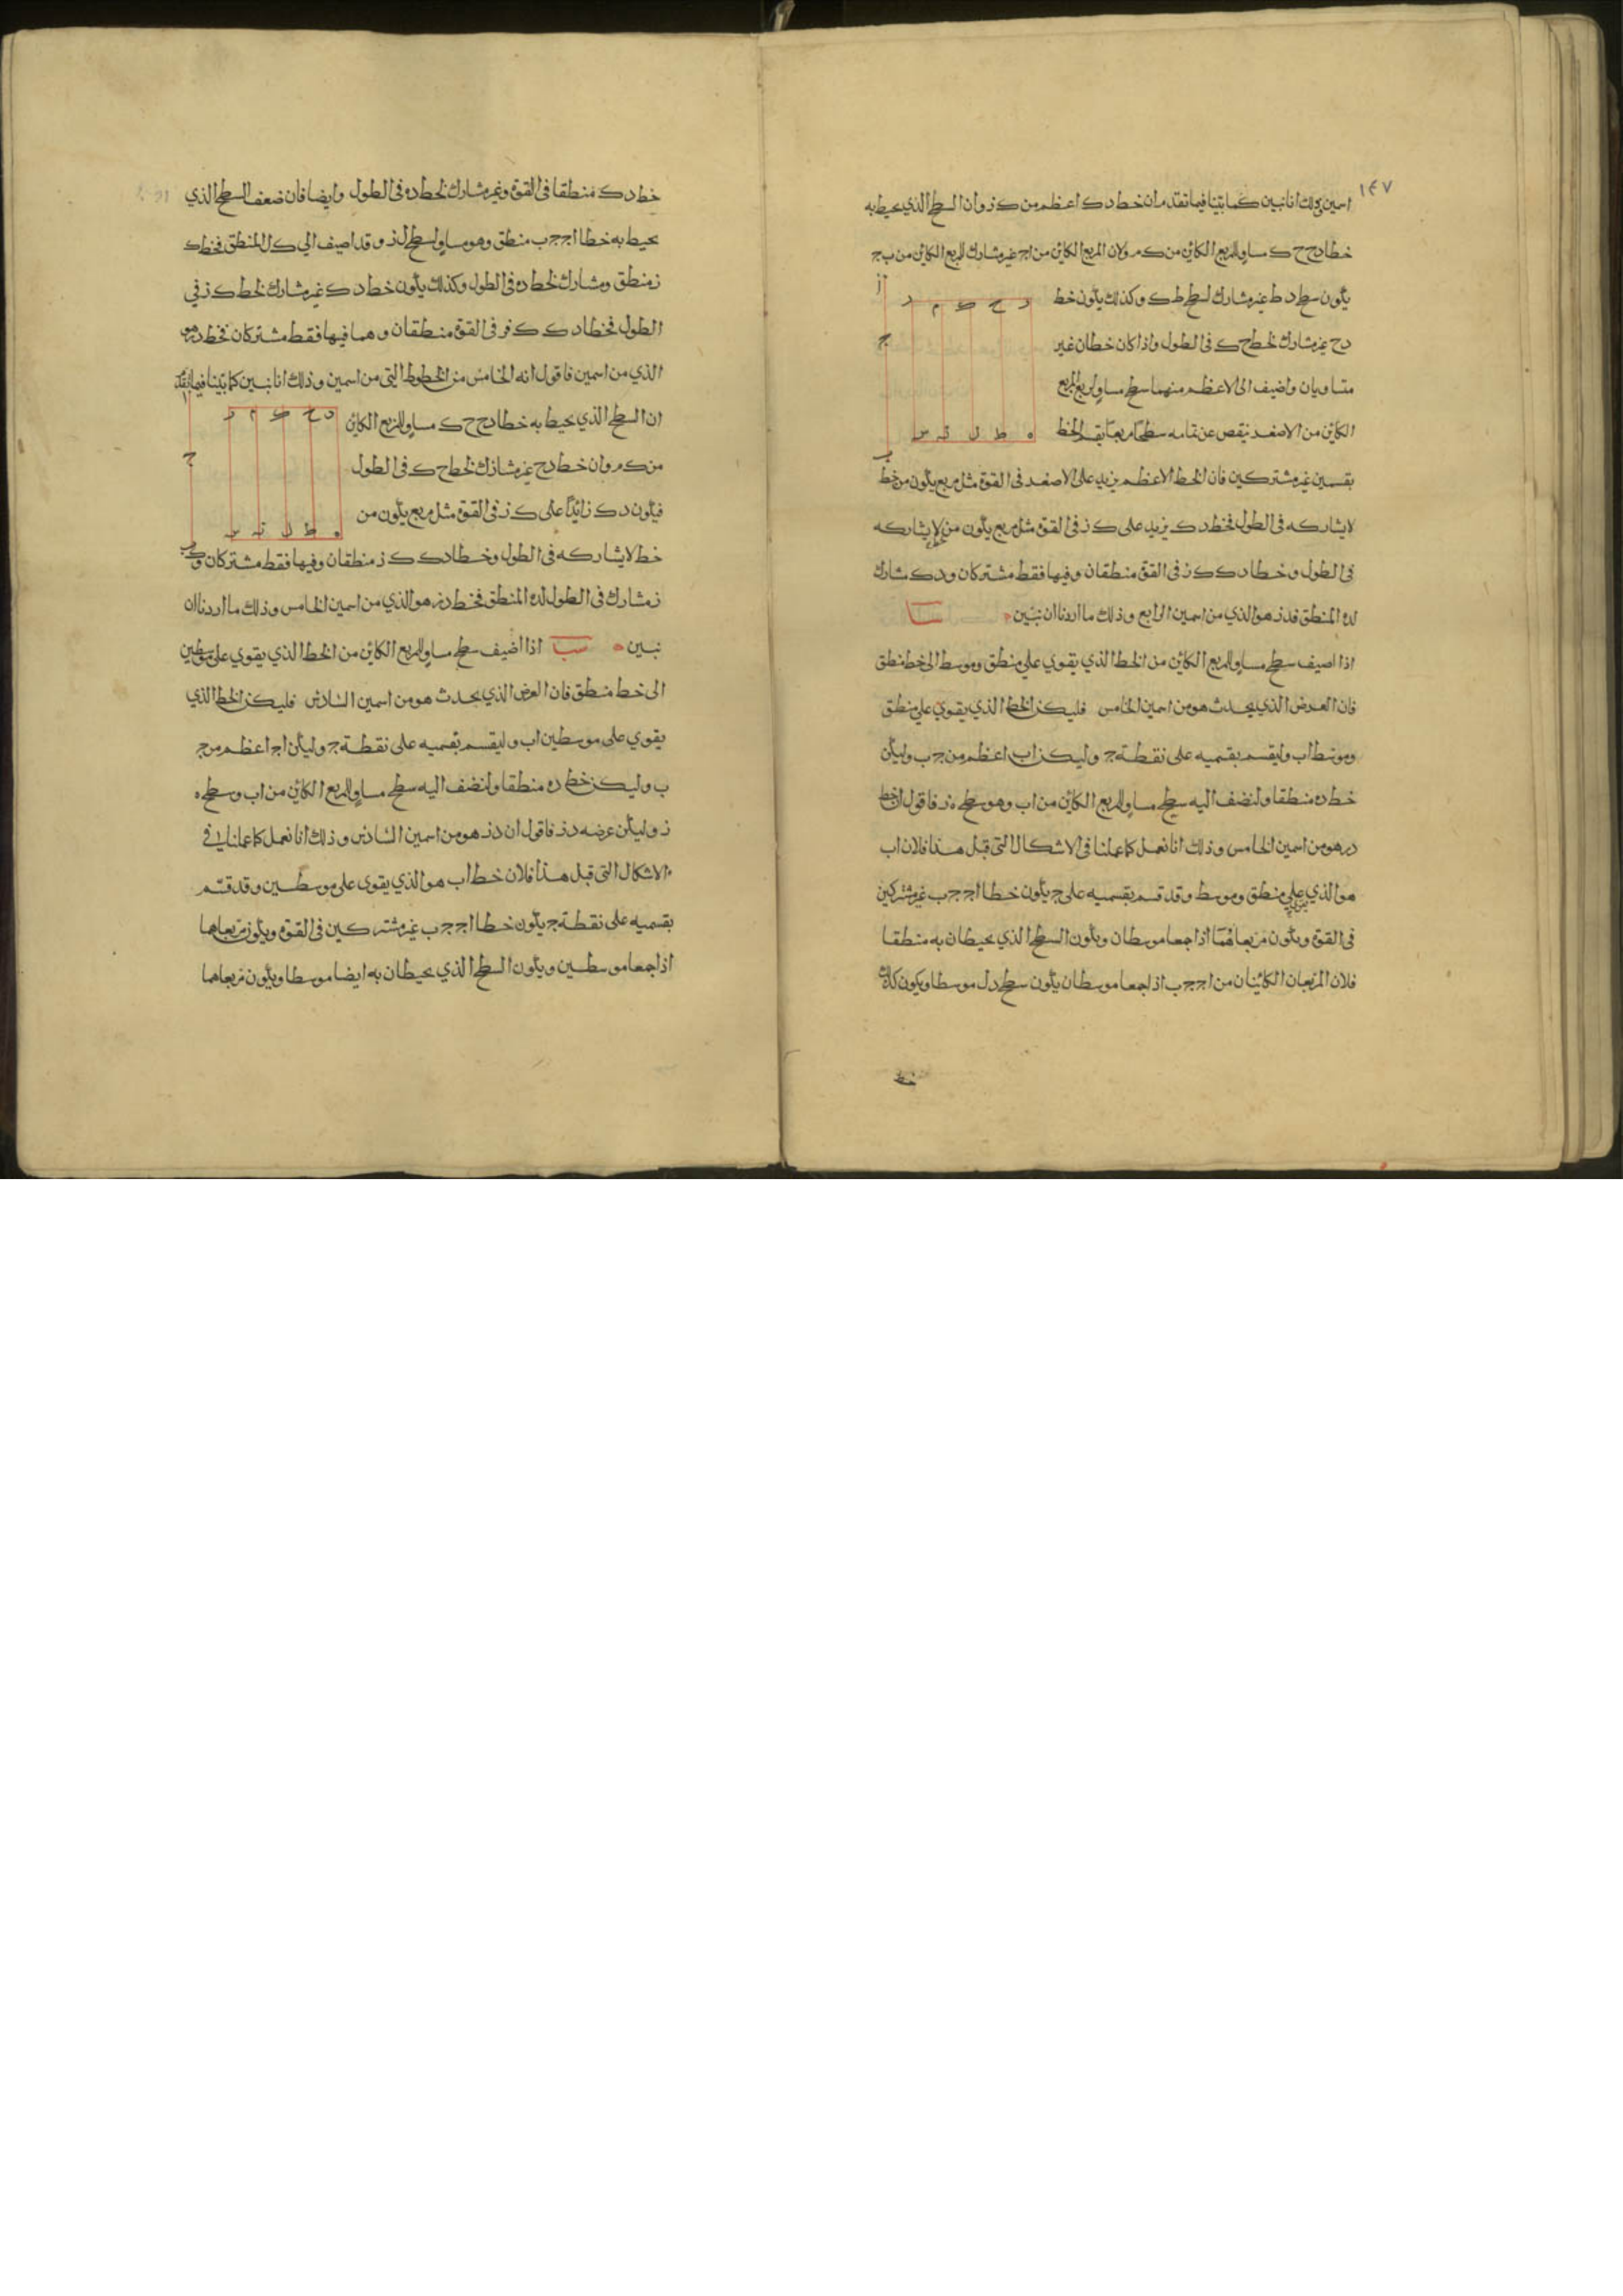 ١٤٧
اسمين وذلك انا نبين كما بينا فيما تقدم ان خط د ك اعظم من ك ز وان السطح الذي يحيط به
خطا د ح ح ك مساو للمربع الكائن من ك م ولان المربع الكائن من ا ج غير مشارك للمربع الكائن من ب ج
يكون سطح د ط غير مشارك لسطح ط ك وكذلك يكون خط
د ح غير مشارك لخط ح ك في الطول واذا كان خطان غير
متساويان واضيف الى الاعظم منهما سطح مساو لربع المربع
الكائن من الاصغر ينقص عن تمامه سطحا مربعا يقسم الخط
بقسمين غير مشتركين فان الخط الاعظم يزيد على الاصغر في القوة مثل مربع يكون من خط
لا يشاركه في الطول فخط د ك يزيد على ك ز في القوة مثل مربع يكون من خط لا يشاركه
في الطول وخطا د ك ك ز في القوة منطقان وفيها فقط مشتركان و د ك مشارك
لده المنطق فدز هو الذي من اسمين الرابع وذلك ما اردنا ان نبين سا
اذا اضيف سطح مساو للمربع الكائن من الخط الذي يقوي على منطق وموسط الى خط منطق
فان العرض الذي يحدث هو من اسمين الخامس فليكن الخط الذي يقوي على منطق
وموسط اب وليقسم بقسميه على نقطة ج وليكن اب اعظم من ج ب وليكن
خط ده منطقا ولنضف اليه سطح مساو للمربع الكائن من اب وهو سطح ه ز فاقول ان خط
دز هو من اسمين الخامس وذلك انا نعمل كما عملنا في الاشكال التي قبل هذا فلان اب
هو الذي يقوي على منطق وموسط وقد قسم بقسميه على ج يكون خطا ا ج ج ب غير مشتركين
في القوة ويكون مربعاهما اذا جمعا موسطان ويكون السطح الذي يحيطان به منطقا
فلان المربعان الكائنان من ا ج ج ب اذا جمعا موسطان يكون سطح د ل موسطا ويكون كذلك
خط
خط د ك منطقا في القوة وغير مشارك لخط ده في الطول وايضا فان ضعف السطح الذي
يحيط به خطا ا ج ج ب منطق وهو مساو لسطح ل ز وقد اضيف الى ك ل المنطق فخط ك
ز منطق ومشارك لخط ده في الطول وكذلك يكون خط د ك غير مشارك لخط ك ز في
الطول فخطا د ك ك ز في القوة منطقان وهما فيها فقط مشتركان فخط دز هو
الذي من اسمين فاقول انه الخامس من الخطوط التي من اسمين وذلك انا نبين كما بينا فيما تقدم
ان السطح الذي يحيط به خطا د ح ح ك مساو للمربع الكائن
من ك م وان خط د ح غير مشارك لخط ح ك في الطول
فيكون د ك زائدا على ك ز في القوة مثل مربع يكون من
خط لا يشاركه في الطول وخطا د ك ك ز منطقان وفيها فقط مشتركان و ك
ز مشارك في الطول لده المنطق فخط دز هو الذي من اسمين الخامس وذلك ما اردنا ان
نبين سب اذا اضيف سطح مساو للمربع الكائن من الخط الذي يقوي على موسطين
الى خط منطق فان العرض الذي يحدث هو من اسمين السادس فليكن الخط الذي
يقوي على موسطين اب وليقسم بقسميه على نقطة ج وليكن ا ج اعظم من ج
ب وليكن خط ده منطقا ولنضف اليه سطح مساو للمربع الكائن من اب وسطح ه
ز وليكن عرضه دز فاقول ان دز هو من اسمين السادس وذلك انا نعمل كما عملنا في
الاشكال التي قبل هذا فلان خط اب هو الذي يقوى على موسطين وقد قسم
بقسميه على نقطة ج يكون خطا ا ج ج ب غير مشتركين في القوة ويكون مربعاهما
اذا جمعا موسطين ويكون السطح الذي يحيطان به ايضا موسطا ويكون مربعاهما